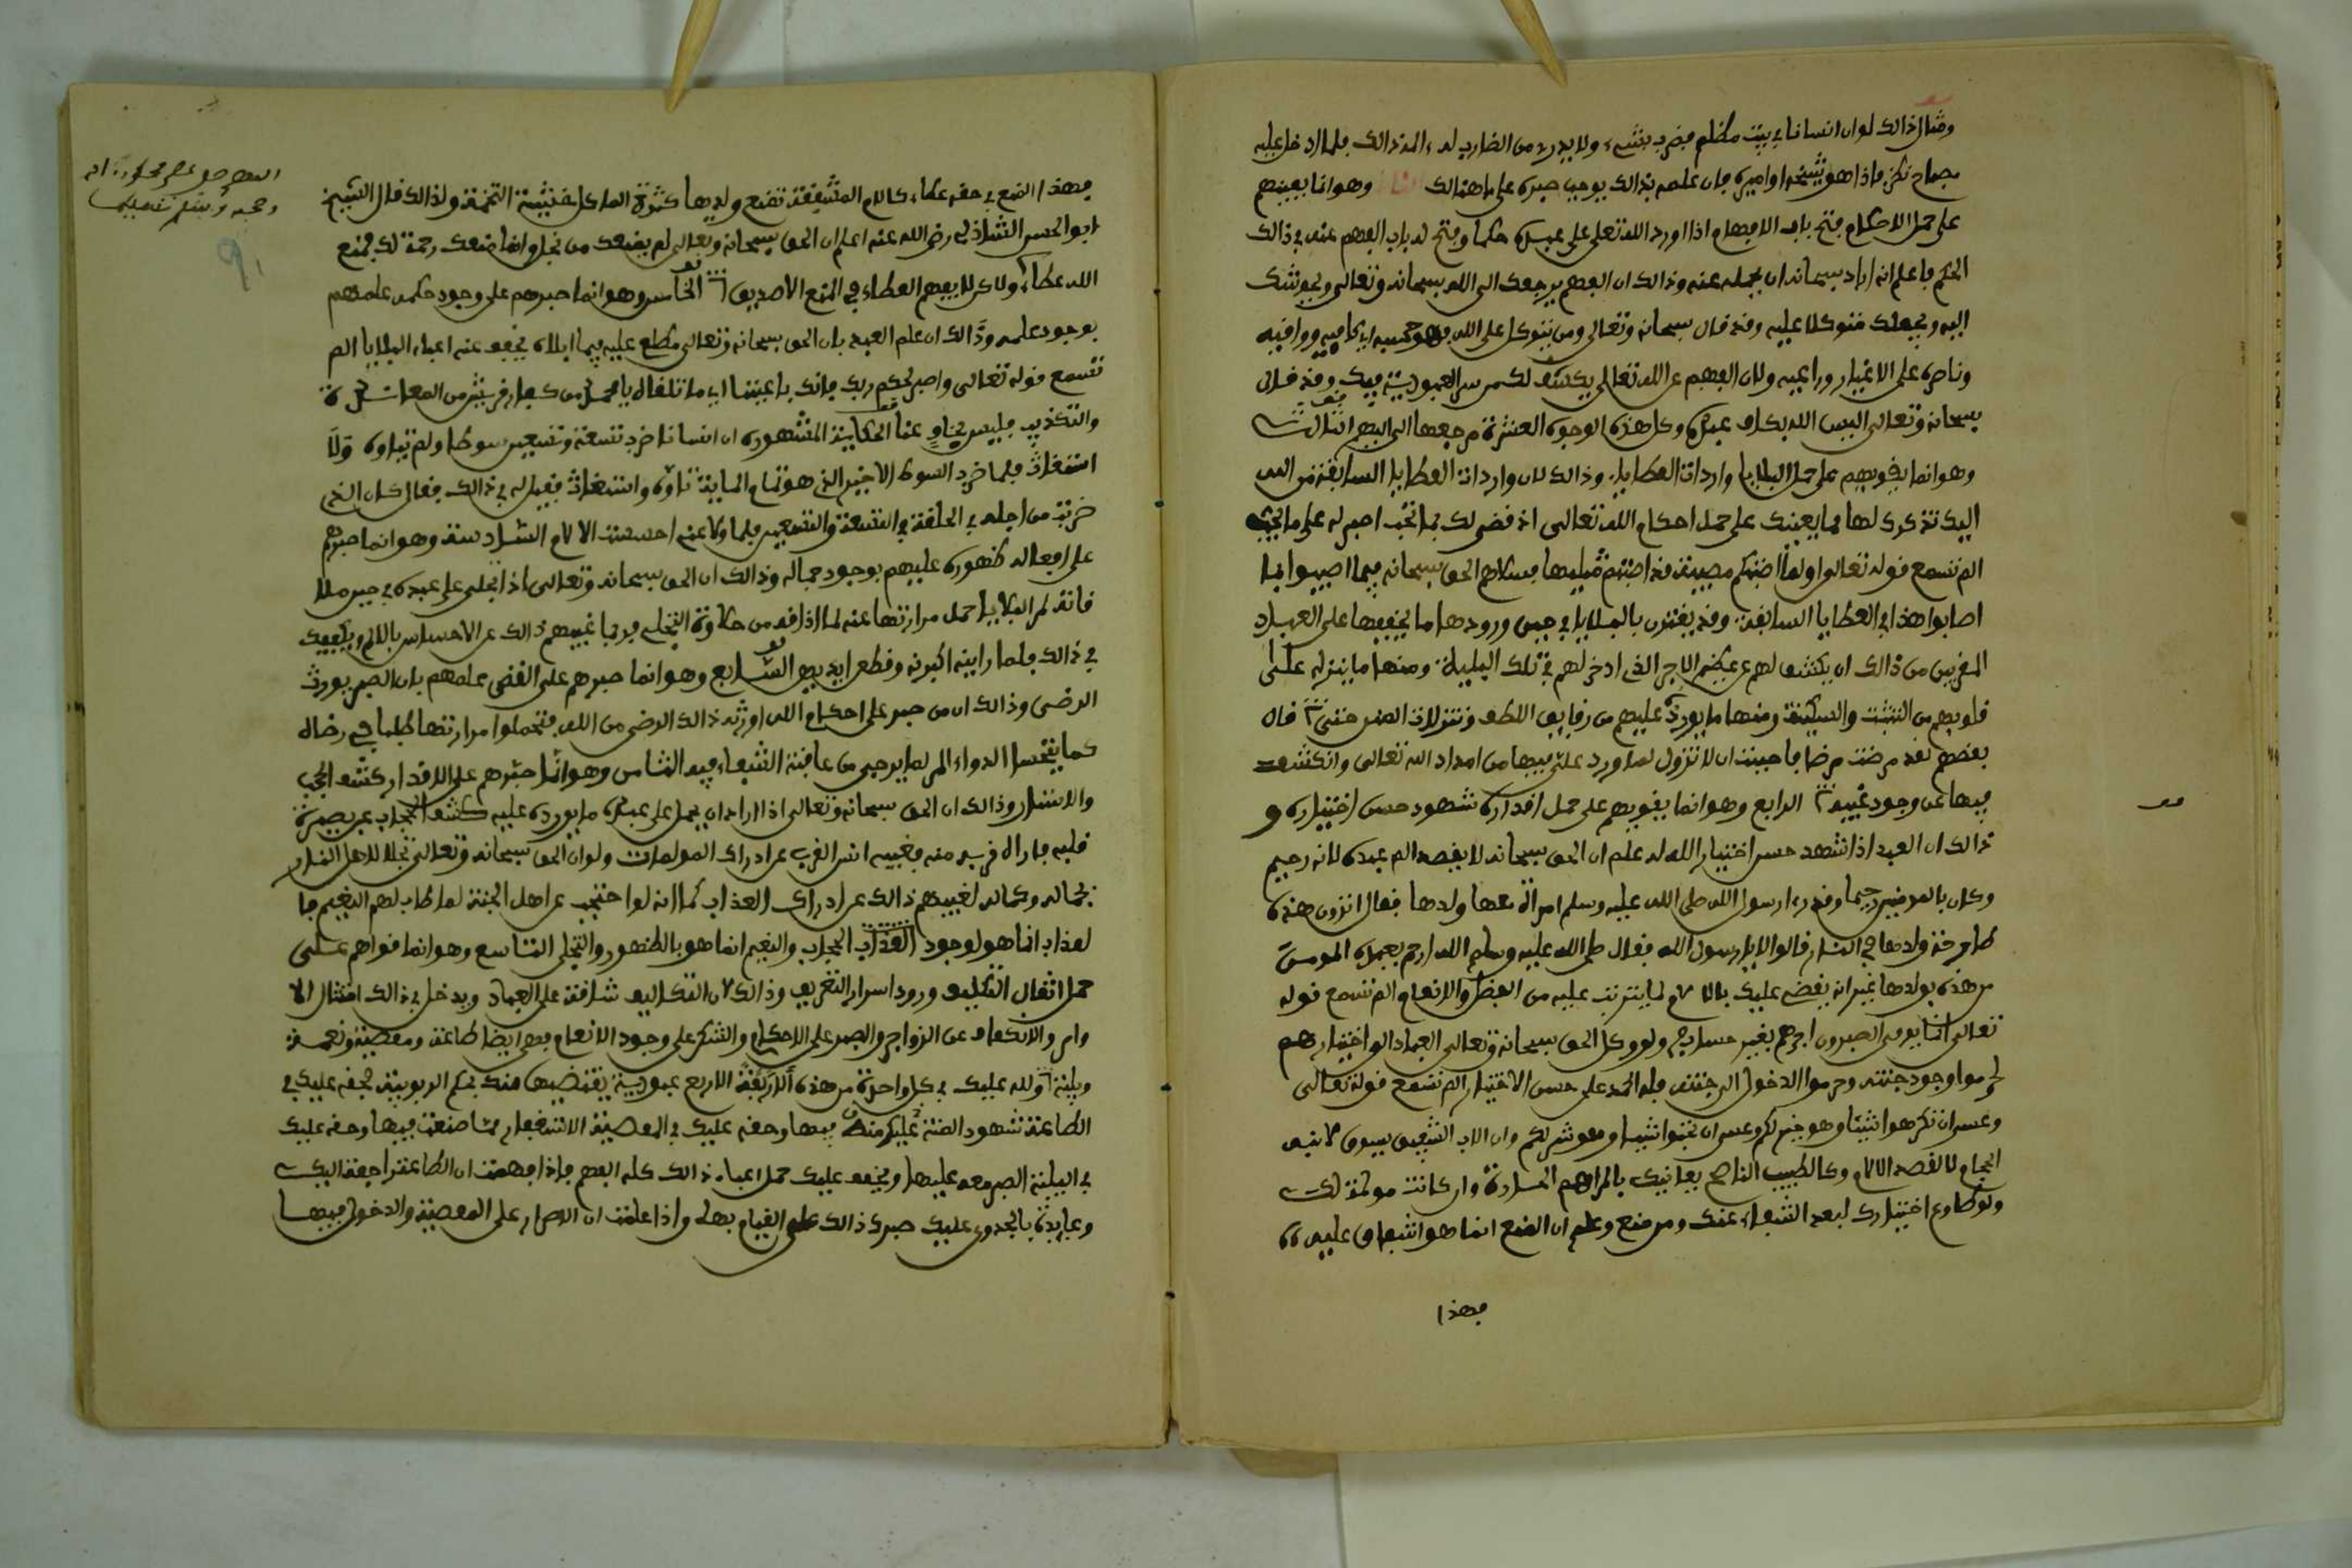 ومثال ذالك لوان انسانا في بيت مظلم فضرب بشيء ولا يدري من الضارب له المذالك فلما ادخل عليه
مصباح نظر فاذا هو شيخه او اميره فان علمه بذالك يوجب صبره على ما هنالك وهو انما يعينهم
على حمل الاحكام فتح باب الافهام اذا اورد الله تعلى على عبده حكما وفتح له باب الفهم عنه في ذالك
الحكم فاعلم انه اراد سبحانه ان يحمله عنه وذالك ان الفهم يرجعك الى الله سبحانه وتعالى ويحوشك
اليه ويجعلك متوكلا عليه وقد قال سبحانه وتعالى ومن يتوكل على الله فهو حسبه اي كافيه وواقيه
وناصره على الاغيار وراعيه ولان الفهم عن الله تعالى يكشف لك عن سر العبودية فيك وقد قال
سبحانه وتعالى اليس الله بكاف عبده وكل هذه الوجوه العشرة مرجعها الى الفهم الثالث
وهو انما يقويهم على حمل البلايا واردات العطايا وذالك لان واردات العطايا السابقة من الله
اليك تذكرك لها مما يعينك على حمل احكام الله تعالى اذ قضى لك بما تحب اصبر له على ما يحب
الم تسمع قوله تعالى اولما اصبتكم مصيبة قد اصبتم مثليها فسلاهم الحق سبحانه فيما اصيبوا بما
اصابوا هذا في العطايا السابقة وقد يقترن بالبلايا في حين ورودها ما يخففها على العباد
المقربين من ذالك ان يكشف لهم عن عظيم الاجر الذي ادخر لهم في تلك البلية ومنها ما ينزله على
قلوبهم من التثبت والسكينة ومنها ما يورده عليهم من رقايق اللطف وتنزلات المنن حتى قال
بعضهم لقد مرضت مرضا فاحببت ان لا تزول لما ورد علي فيها من امداد الله تعالى وانكشف
فيها عن وجود غيبه الرابع وهو انما يقويهم على حمل اقداره شهود حسن اختياره و
ذالك ان العبد اذا شهد حسن اختيار الله له علم ان الحق سبحانه لا يقصد الم عبده لانه رحيم
وكان بالمومنين رحيما وقد را رسول الله صلى الله عليه وسلم امراة معها ولدها فقال اترون هذه
طارحة ولدها في النار قالوا لا يا رسول الله فقال صلى الله عليه وسلم الله ارحم بعبده المومن
من هذه بولدها غير انه يقضي عليك بالالام لما يترتب عليه من الفضل والانعام الم تسمع قوله
تعالى انما يوفى الصبرون اجرهم بغير حساب ولو وكل الحق سبحانه وتعالى العباد الى اختيارهم
لحرموا وجود جنته وحرموا الدخول الى جنته فله الحمد على حسن الاختيار الم تسمع قوله تعالى
وعسى ان تكرهوا شيئا وهو خير لكم وعسى ان تحبوا شيئا وهو شر لكم وان الاب الشفيق يسوق لابنه
الحجام لا لقصد الالام وكالطبيب الناصح يعانيك بالمراهم الحادة وان كانت مولمة لك
ولو طاوع اختيارك لبعد الشفاء عنك ومن منع وعلم ان المنع انما هو اشفاق عليه
فهذا
فهذا المنع في حقه عطاء كالام المشفقة تمنع ولدها كثرة الماكل خشية التخمة ولذالك قال الشيخ
ابو الحسن الشاذلي رضي الله عنه اعلم ان الحق سبحانه وتعالى لم يمنعك من بخل وانما منعك رحمة لك فمنع
الله عطاء ولاكن لا يفهم العطاء في المنع الا صديق الخامس وهو انما صبرهم على وجود حكمه علمهم
بوجود علمه وذالك ان علم العبد بان الحق سبحانه وتعالى مطلع عليه فيما ابلاه يخفف عنه اعباء البلايا الم
تسمع قوله تعالى واصبر لحكم ربك فانك باعيننا اي ما تلقاه يا محمد من كفار قريش من المعاندة
والتكذيب فليس بخاف عنا الحكاية المشهورة ان انسانا ضرب تسعة وتسعين سوطا ولم يتاوه ولا
استغاث فلما ضرب السوط الاخير الذي هو تمام الماية تاوه واستغاث فقيل له في ذالك فقال كان الذي
ضربت من اجله في الحلقة في التسعة والتسعين فلما ولا عني احسست الالام السادسة وهو انما صبرهم
على افعاله ظهوره عليهم بوجود جماله وذالك ان الحق سبحانه وتعالى اذا تجلى على عبده في حين ملا
قاة لمر البلايا حمل مرارتها عنه لما اذاقه من حلاوة التجلي فربما غيبهم ذالك عن الاحساس بالالم ويكفيك
في ذالك فلما راينه اكبرنه وقطعن ايديهن السابع وهو انما صبرهم على القضى علمهم بان الصبر يورث
الرضى وذالك ان من صبر على احكام الله اورثه ذالك الرضى من الله فتحملوا مرارتها طلبا في رضاه
كما يتحسا الدواء المر لما يرجى من عاقبة الشفاء فيه الثامن وهو انما صبرهم على الاقدار كشف الحجب
والاستار وذالك ان الحق سبحانه وتعالى اذا اراد ان يحمل على عبده ما يورده عليه كشف الحجاب عن بصيرة
قلبه فاراه قربه منه فغيبه انس القرب عن ادراك المولمات ولو ان الحق سبحانه وتعالى تجلا لاهل النار
بجماله وكماله لغيبهم ذالك عن ادراك العذاب كما انه لو احتجب عن اهل الجنة لما طاب لهم النعيم فا
لعذاب انما هو لوجود الحجاب والنعيم انما هو بالظهور والتجلي التاسع وهو انما قواهم على
حمل اثقال التكليف ورود اسرار التعريف وذالك لان التكاليف شاقة على العباد ويدخل في ذالك امتثال الا
وامر والانكفاف عن الزواجر والصبر على الاحكام والشكر على وجود الانعام فهي ايضا طاعة ومعصية ونعمة
وبلية ولله عليك في كل واحدة من هذه الاربعة عبودية يقتضيها منك بحكم الربوبية فحقه عليك في
الطاعة شهود المنة عليك منه فيها وحقه عليك في المعصية الاستغفار مما صنعت فيها وحقه عليك
في البلية الصبر معه عليها ويخفف عليك حمل اعباء ذالك كله الفهم فاذا فهمت ان الطاعة راجعة اليك
وعايدة بالجدوى عليك صبرك ذالك على القيام بها واذا علمت ان الاصرار على المعصية والدخول فيها